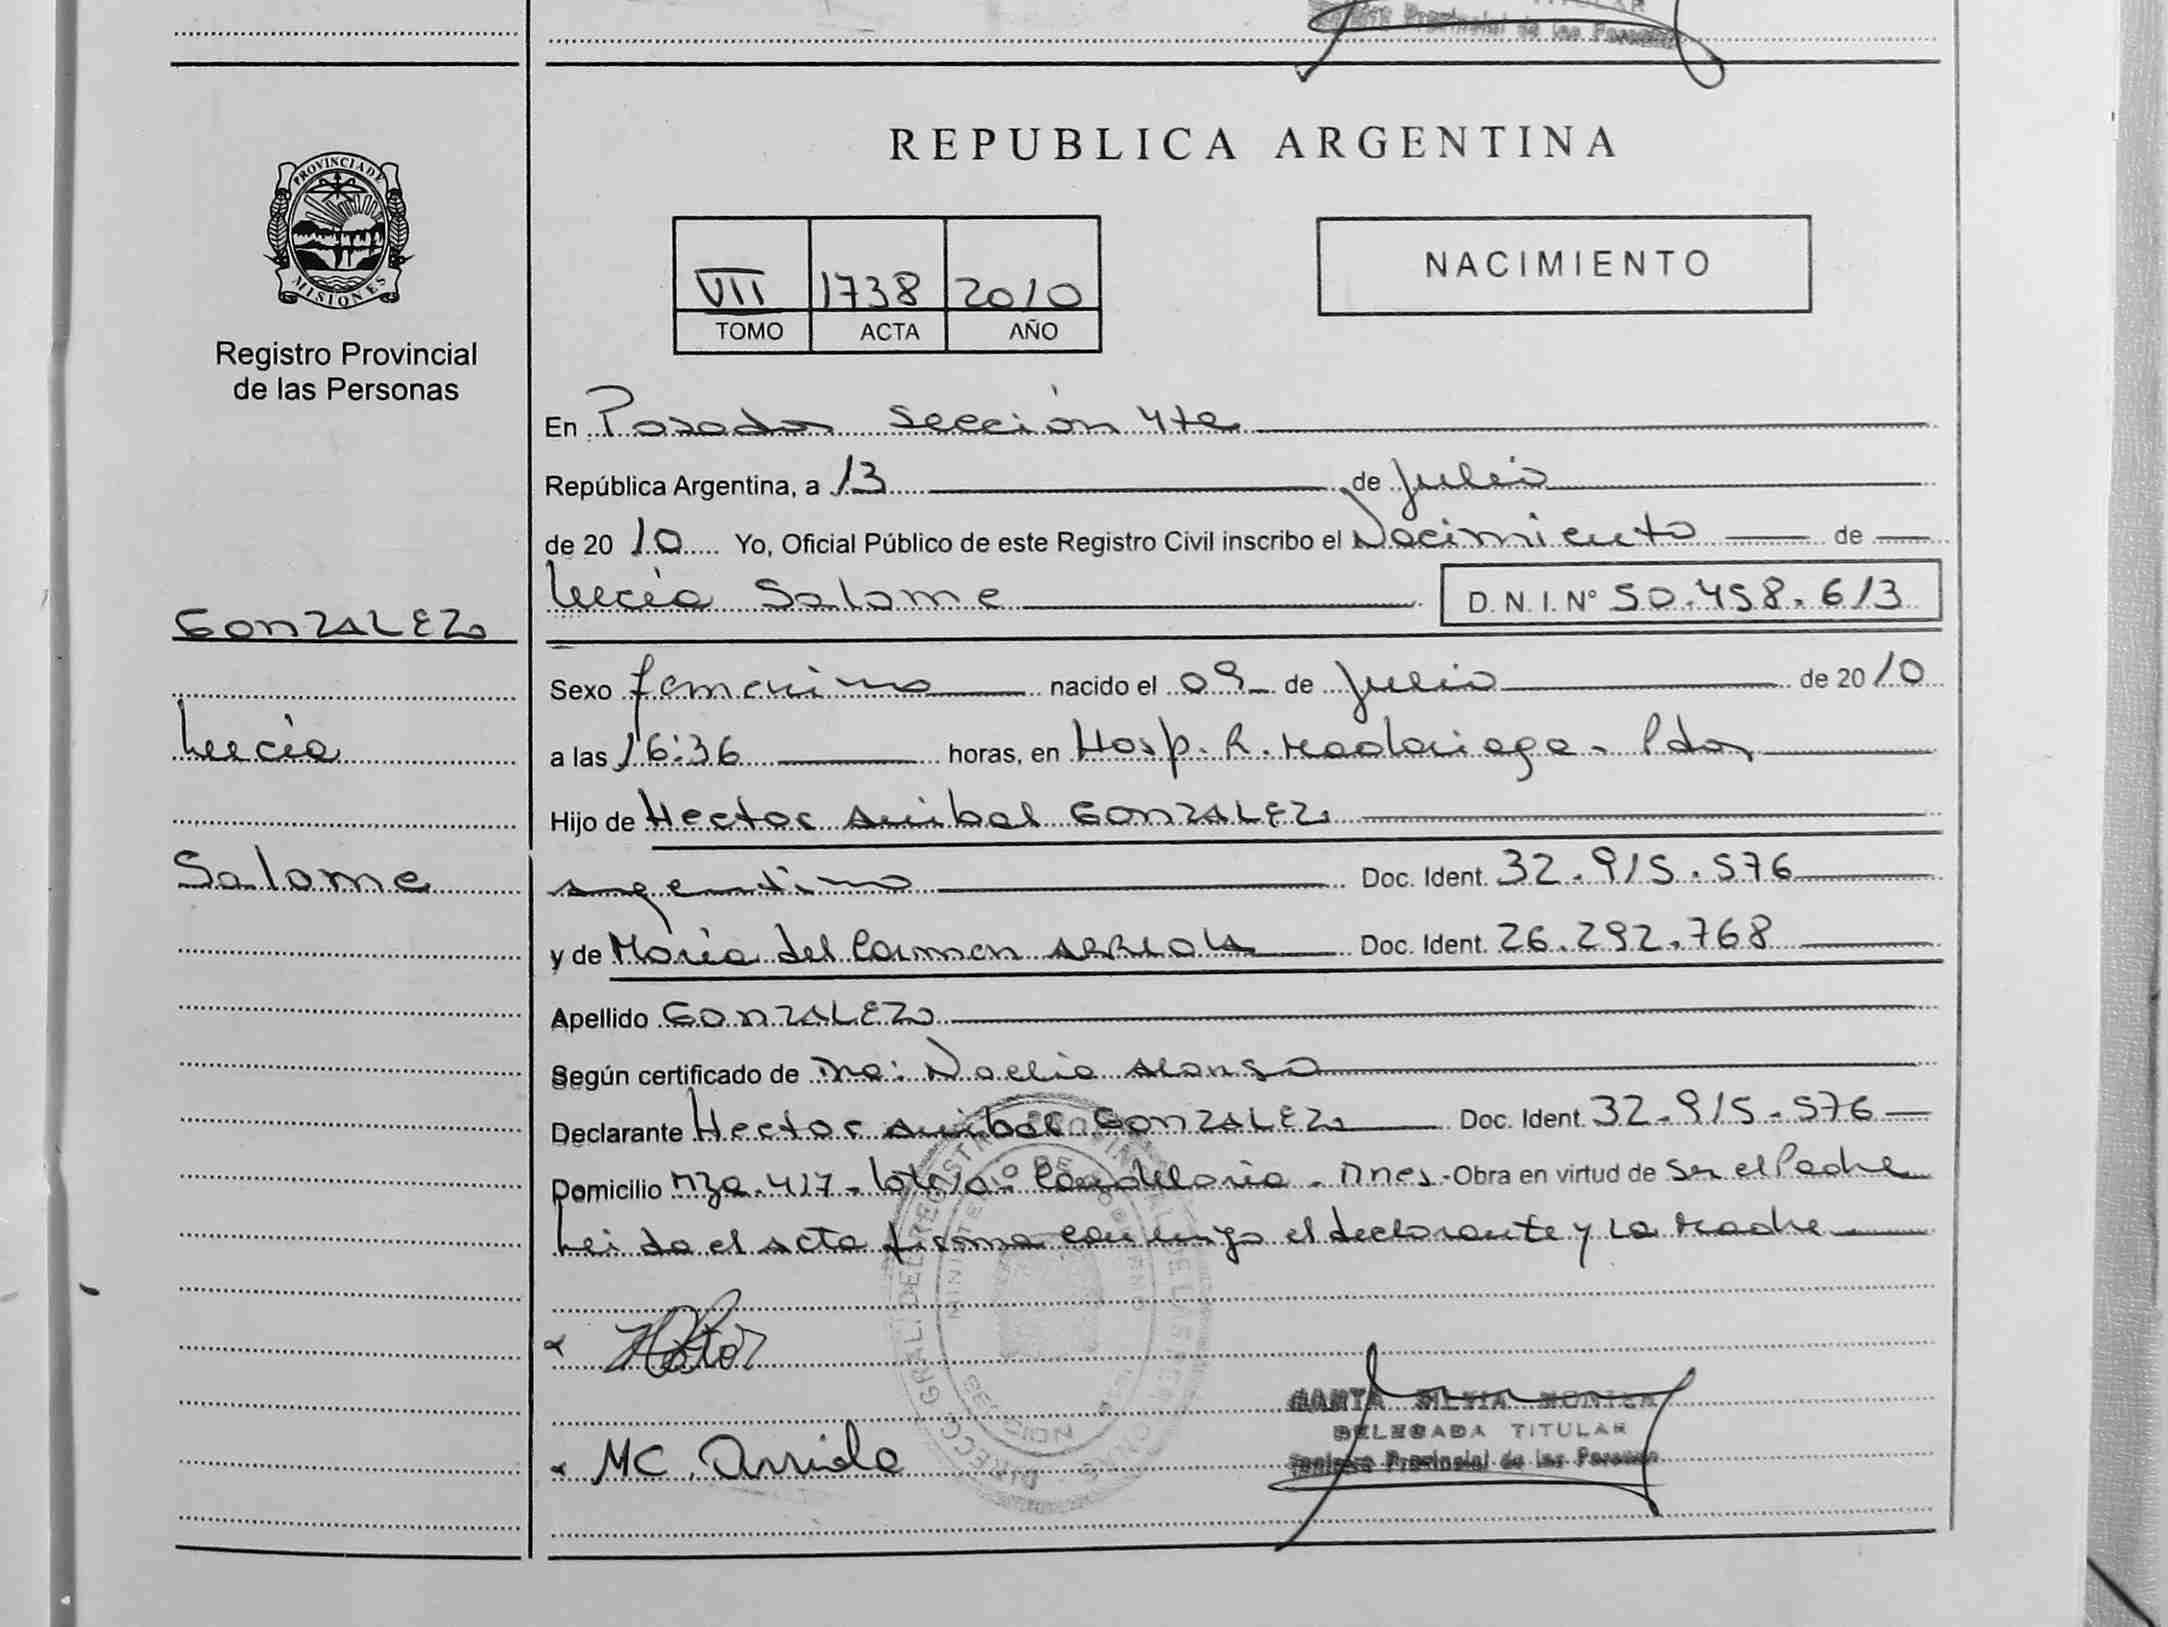 REPUBLICA ARGENTINA
PROVINCIA DE MISIONES
Registro Provincial
de las Personas
VII 1738 2010
TOMO ACTA AÑO
NACIMIENTO
En Posadas Sección 4ta
República Argentina, a 13 de Julio
de 20 10 Yo, Oficial Público de este Registro Civil inscribo el Nacimiento de
Lucía Salome D.N.I. Nº 50.458.613
GONZALEZ
Lucía
Salome
Sexo femenino nacido el 09 de Julio de 20 10
a las 16:36 horas, en Hosp. R. Madariaga - Pdas
Hijo de Hector Anibal GONZALEZ
argentino Doc. Ident. 32.915.576
y de María del Carmen ARRIOLA Doc. Ident. 26.292.768
Apellido GONZALEZ
Según certificado de Dra: Noelia Alonso
Declarante Hector Anibal GONZALEZ Doc. Ident. 32.915.576
Domicilio Mza. 417 - Candelaria - Mnes - Obra en virtud de Ser el Padre
Leida el acta firma conmigo el declarante y la Madre
Hector
MC. Arriola
SILVIA MONICA
DELEGADA TITULAR
Provincial de las Personas